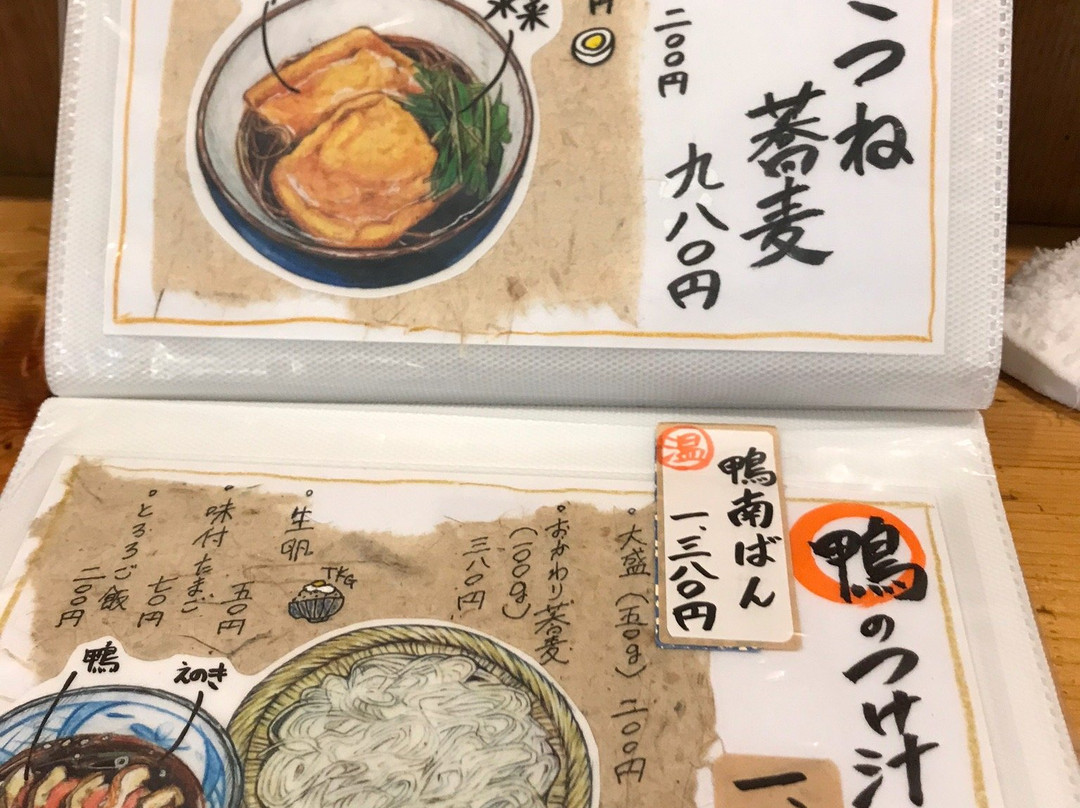 つね
蕎麦
九八〇円
二〇〇円
水菜
円
温
鴨南ばん
一、三八〇円
鴨のつけ汁
一、
・大盛(一五〇g) 二〇〇円
・おかわり蕎麦
(一〇〇g)
三八〇円
・生卵
五〇円
TKG
・味付たまご
七〇円
・とろろご飯
二〇〇円
鴨
えのき